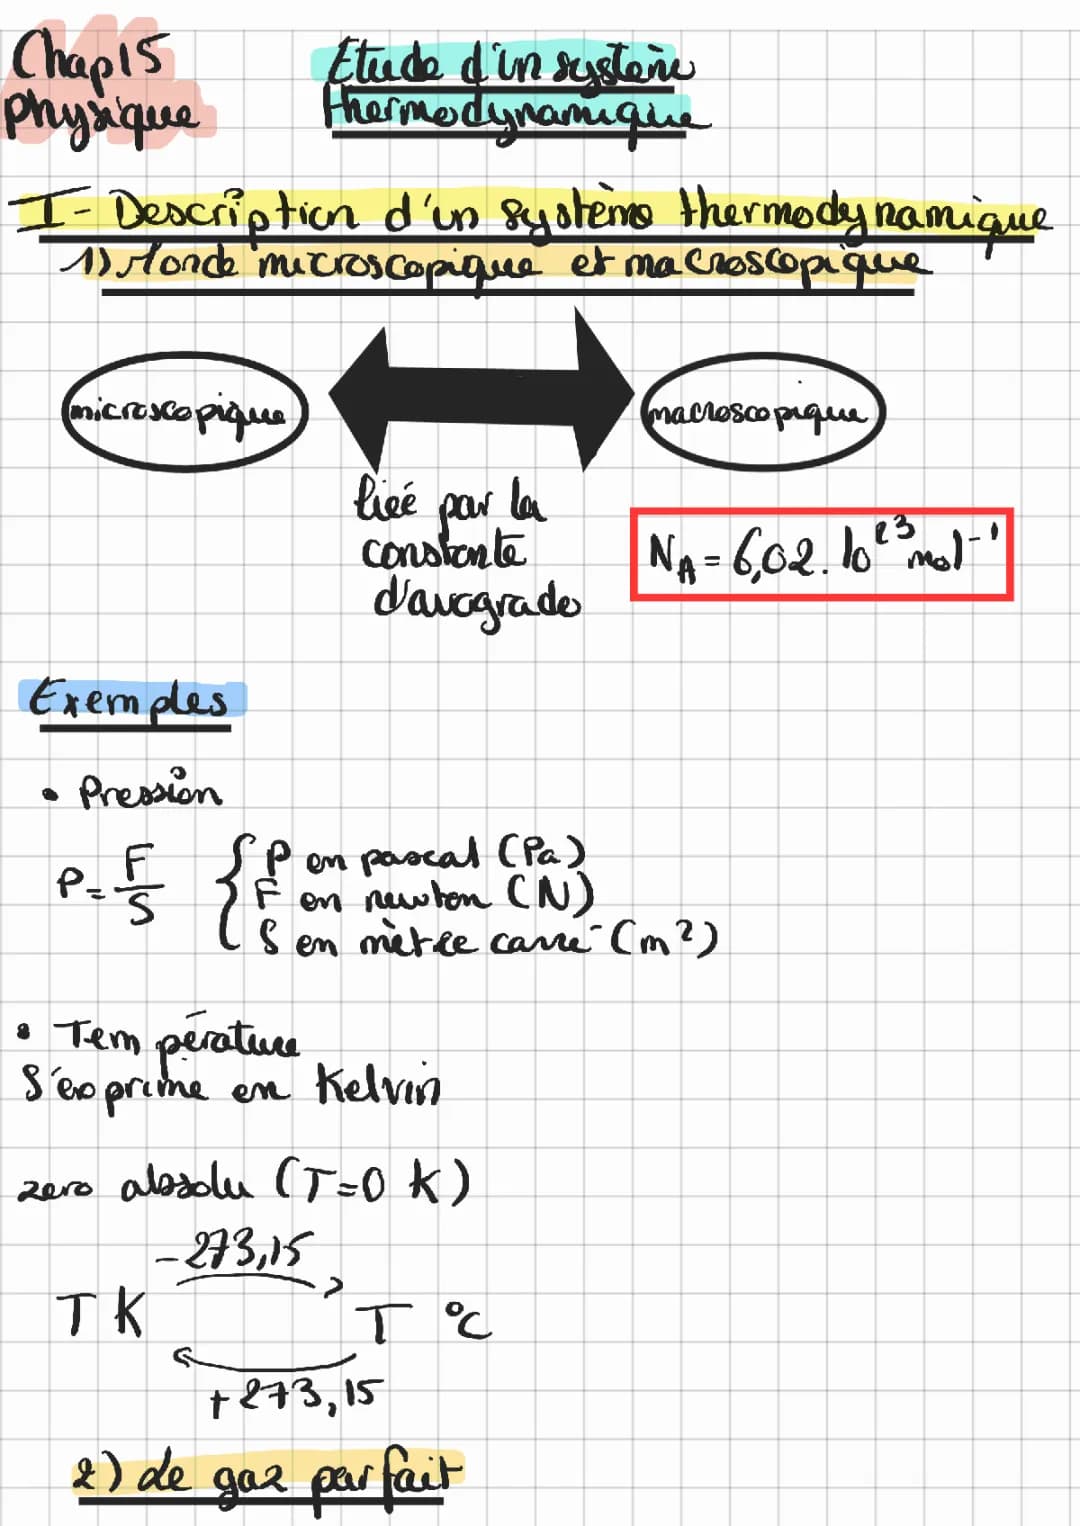 Chap15
Physique
Etude d'un système
thermodynamique
I - Description d'un système thermodynamique
1) Monde microscopique et macroscopique
microscopique
macroscopique
lieé par la
constante
d'avogrado
N_A = 6,02.10²³ mol⁻¹
Exemples
• Pression
P = F/S { P en pascal (Pa)
F en newton (N)
S en mètre carré (m²)
• Température
S'exprime en Kelvin
zero absolu (T=0 K)
-273,15
T K T °C
+273,15
2) de gaz parfait